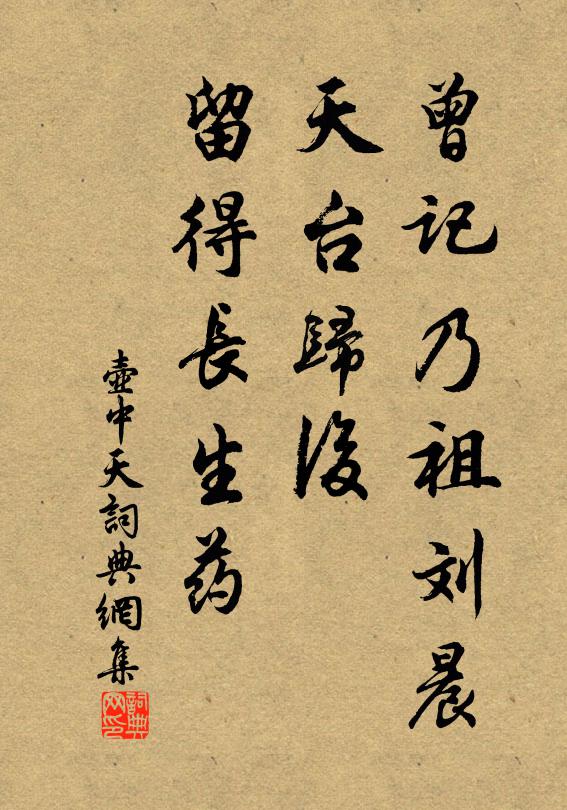 曾记乃祖刘晨
天台歸後
留得長生药
壺中天詞典網集
詞典
网印